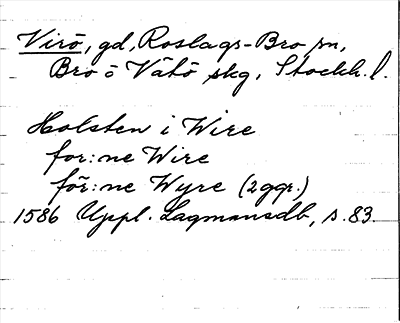 Virö, gd, Roslags-Bro sn,
Bro o Vätö skg, Stockh. l.
Holsten i Wire
for:ne Wire
för:ne Wyre (2ggr.)
1586 Uppl. Lagmansdb, s. 83.